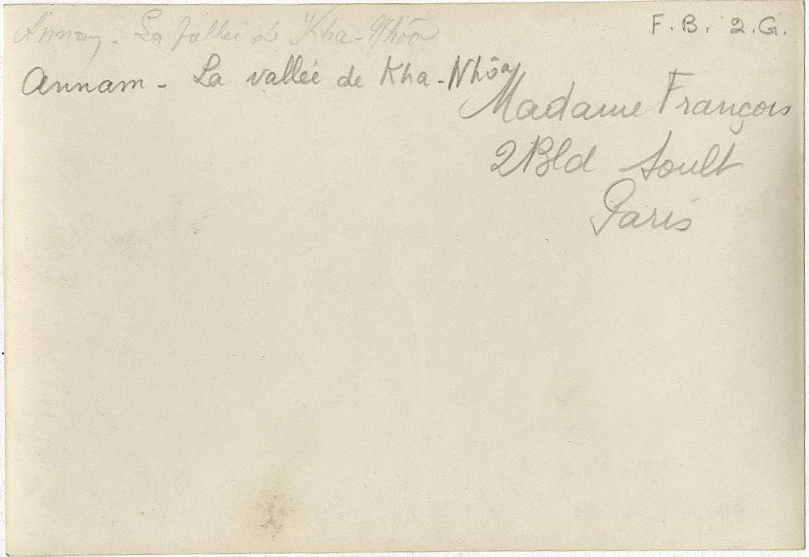 Annam - La vallée de Kha-Nhôn
F. B. 2. G.
Annam - La vallée de Kha-Nhôn
Madame François
2 Bld Soult
Paris